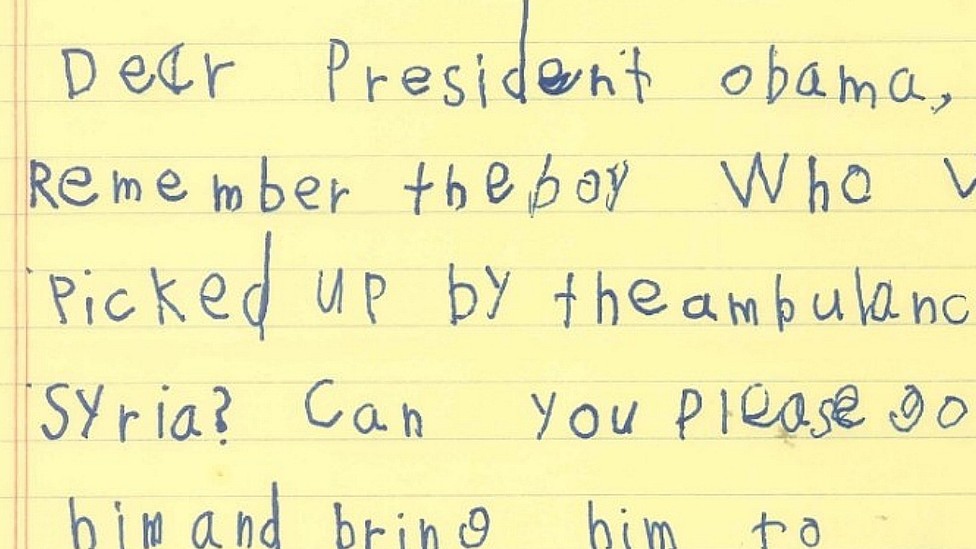 Dear President obama,
Remember the boy Who
Picked up by the ambulanc
Syria? Can you please go
him and bring him to